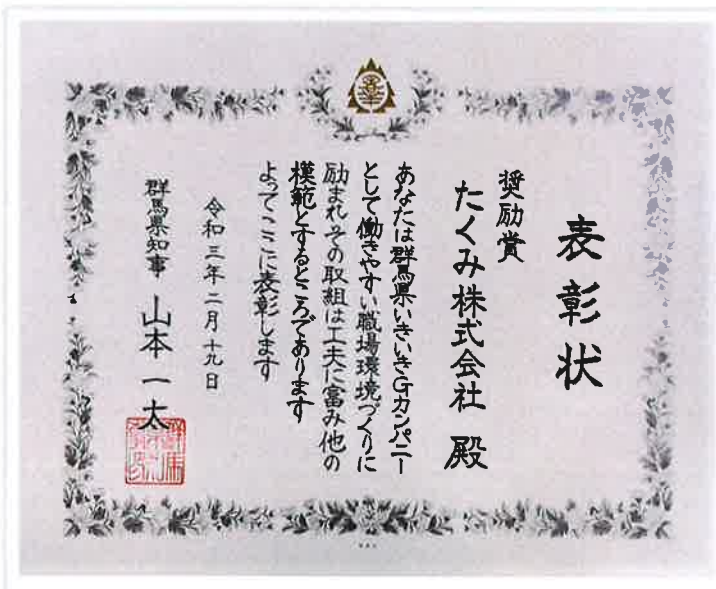 表彰状
奨励賞
たくみ株式会社 殿
あなたは群馬県いきいきGカンパニー
として働きやすい職場環境づくりに
励まれその取組は工夫に富み他の
模範とするところであります
よってここに表彰します
令和三年二月十九日
群馬県知事 山本一太